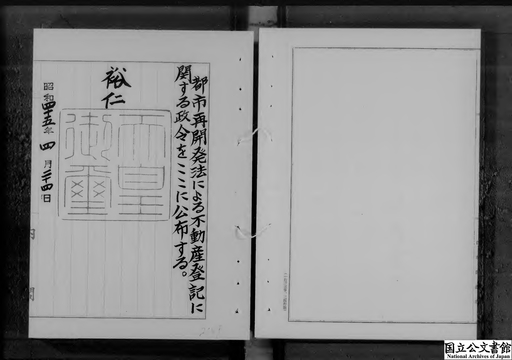 都市再開発法による不動産登記に
関する政令をここに公布する。
裕仁
天皇
御璽
昭和四十五年四月二十四日
内閣
国立公文書館
National Archives of Japan